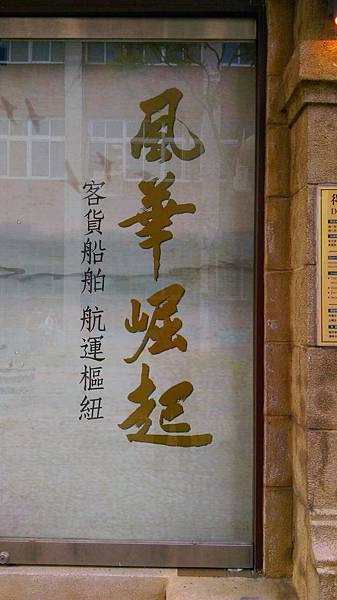 風華崛起
客貨船舶 航運樞紐